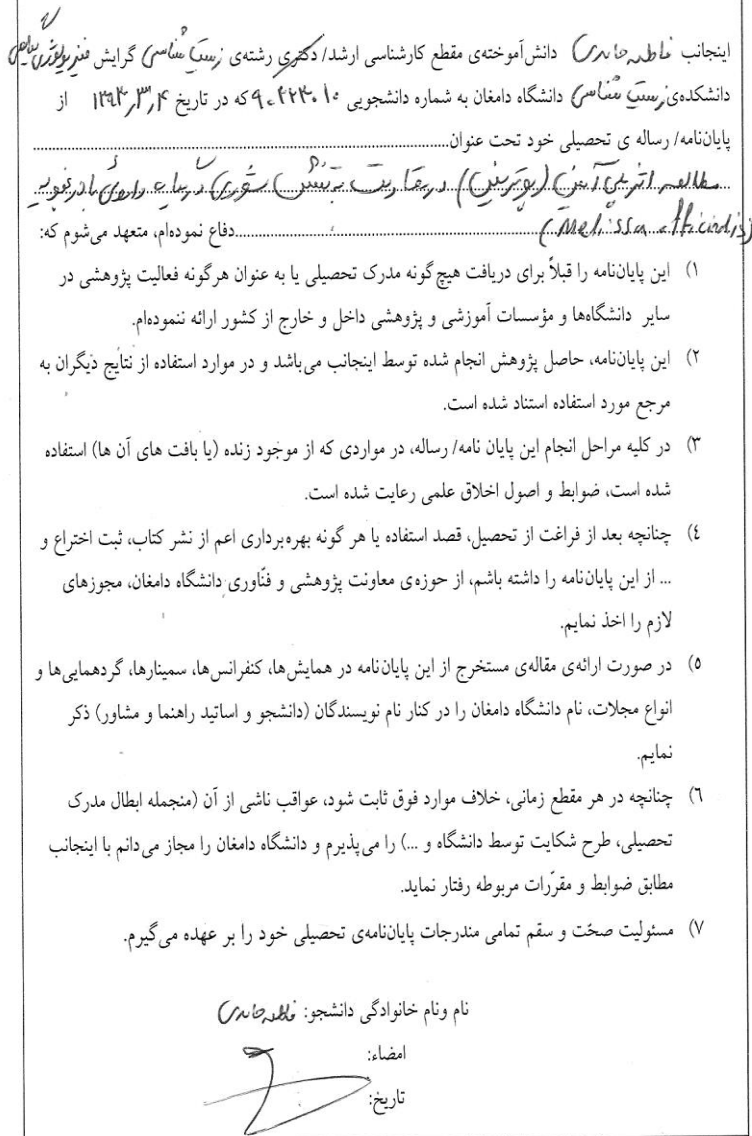 اینجانب فاطمه حامدی دانش‌آموخته‌ی مقطع کارشناسی ارشد/ دکتری رشته‌ی زیست شناسی گرایش فیزیولوژی گیاهی
دانشکده‌ی زیست شناسی دانشگاه دامغان به شماره دانشجویی ۹۰۴۲۳۰۱۰ که در تاریخ ۱۳۹۳٫۳٫۴ از
پایان‌نامه/ رساله ی تحصیلی خود تحت عنوان
مطالعه اثر پلی آمین (پوترسین) در مقاومت به تنش شوری در گیاه داروئی بادرنجبویه
(Melissa officinalis) دفاع نموده‌ام، متعهد می‌شوم که:
۱) این پایان‌نامه را قبلاً برای دریافت هیچ‌گونه مدرک تحصیلی یا به عنوان هرگونه فعالیت پژوهشی در
سایر دانشگاه‌ها و مؤسسات آموزشی و پژوهشی داخل و خارج از کشور ارائه ننموده‌ام.
۲) این پایان‌نامه، حاصل پژوهش انجام شده توسط اینجانب می‌باشد و در موارد استفاده از نتایج دیگران به
مرجع مورد استفاده استناد شده است.
۳) در کلیه مراحل انجام این پایان نامه/ رساله، در مواردی که از موجود زنده (یا بافت های آن ها) استفاده
شده است، ضوابط و اصول اخلاق علمی رعایت شده است.
٤) چنانچه بعد از فراغت از تحصیل، قصد استفاده یا هر گونه بهره‌برداری اعم از نشر کتاب، ثبت اختراع و
... از این پایان‌نامه را داشته باشم، از حوزه‌ی معاونت پژوهشی و فنّاوری دانشگاه دامغان، مجوزهای
لازم را اخذ نمایم.
٥) در صورت ارائه‌ی مقاله‌ی مستخرج از این پایان‌نامه در همایش‌ها، کنفرانس‌ها، سمینارها، گردهمایی‌ها و
انواع مجلات، نام دانشگاه دامغان را در کنار نام نویسندگان (دانشجو و اساتید راهنما و مشاور) ذکر
نمایم.
٦) چنانچه در هر مقطع زمانی، خلاف موارد فوق ثابت شود، عواقب ناشی از آن (منجمله ابطال مدرک
تحصیلی، طرح شکایت توسط دانشگاه و ...) را می‌پذیرم و دانشگاه دامغان را مجاز می‌دانم با اینجانب
مطابق ضوابط و مقرّرات مربوطه رفتار نماید.
۷) مسئولیت صحّت و سقم تمامی مندرجات پایان‌نامه‌ی تحصیلی خود را بر عهده می‌گیرم.
نام ونام خانوادگی دانشجو: فاطمه حامدی
امضاء:
تاریخ: